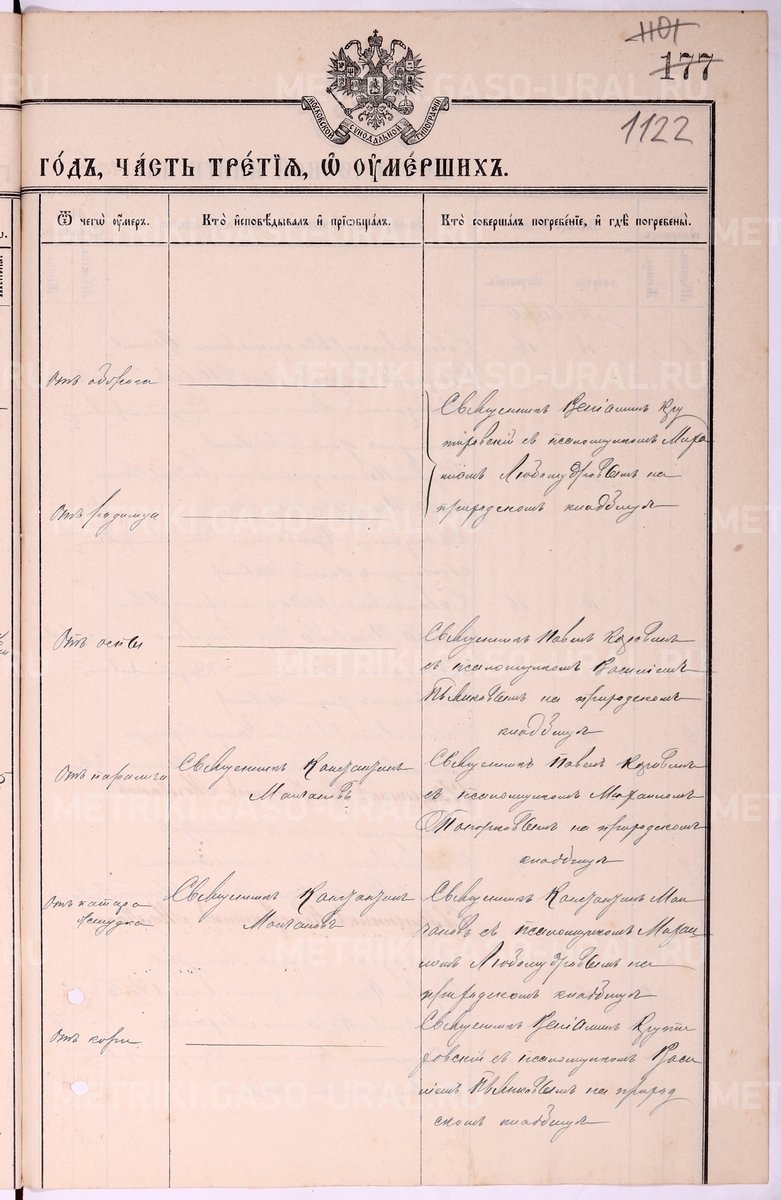 1101
177
1122
МОСКОВСКОЙ СѴНОДАЛЬНОЙ ТИПОГРАФІИ
ГО́ДЪ, ЧА́СТЬ ТРЕ́ТІѦ, Ѡ҆ ОУ҆МЕ́РШИХЪ.
Ѿ чегѡ̀ оу҆́меръ.
Кто̀ и҆сповѣ́дывалъ и҆ прїѡбща́лъ.
Кто̀ соверша́лъ погребе́нїе, и҆ гдѣ̀ погребены̀.
Отъ
Священникъ Веніаминъ Кру
тировскій съ псаломщикомъ Миха
иломъ Любомудровымъ на
природскомъ кладбищѣ
Отъ родимца
Отъ оспы
Священникъ Павелъ Коровинъ
съ псаломщикомъ Василіемъ
Пьянковымъ на природскомъ
кладбищѣ
Отъ паралича
Священникъ Константинъ
Молчановъ
Священникъ Павелъ Коровинъ
съ псаломщикомъ Михаиломъ
Топорковымъ на природскомъ
кладбищѣ
Отъ катара
желудка
Священникъ Константинъ
Молчановъ
Священникъ Константинъ Мол
чановъ съ псаломщикомъ Михаи
ломъ Любомудровымъ на
природскомъ кладбищѣ
Отъ кори
Священникъ Веніаминъ Крути
ровскій съ псаломщикомъ Васи
ліемъ Пьянковымъ на природ
скомъ кладбищѣ
METRIKI.GASO-URAL.RU